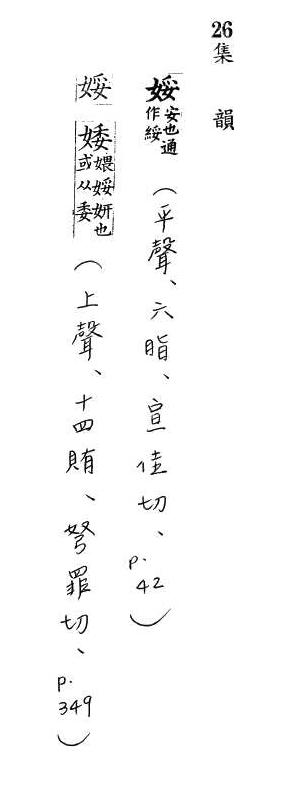 26集韻
娞安也通作綏(平聲、六脂、宣佳切、p.42)
娞 㛂媀娞妍也或从委(上聲、十四賄、弩罪切、p.349)